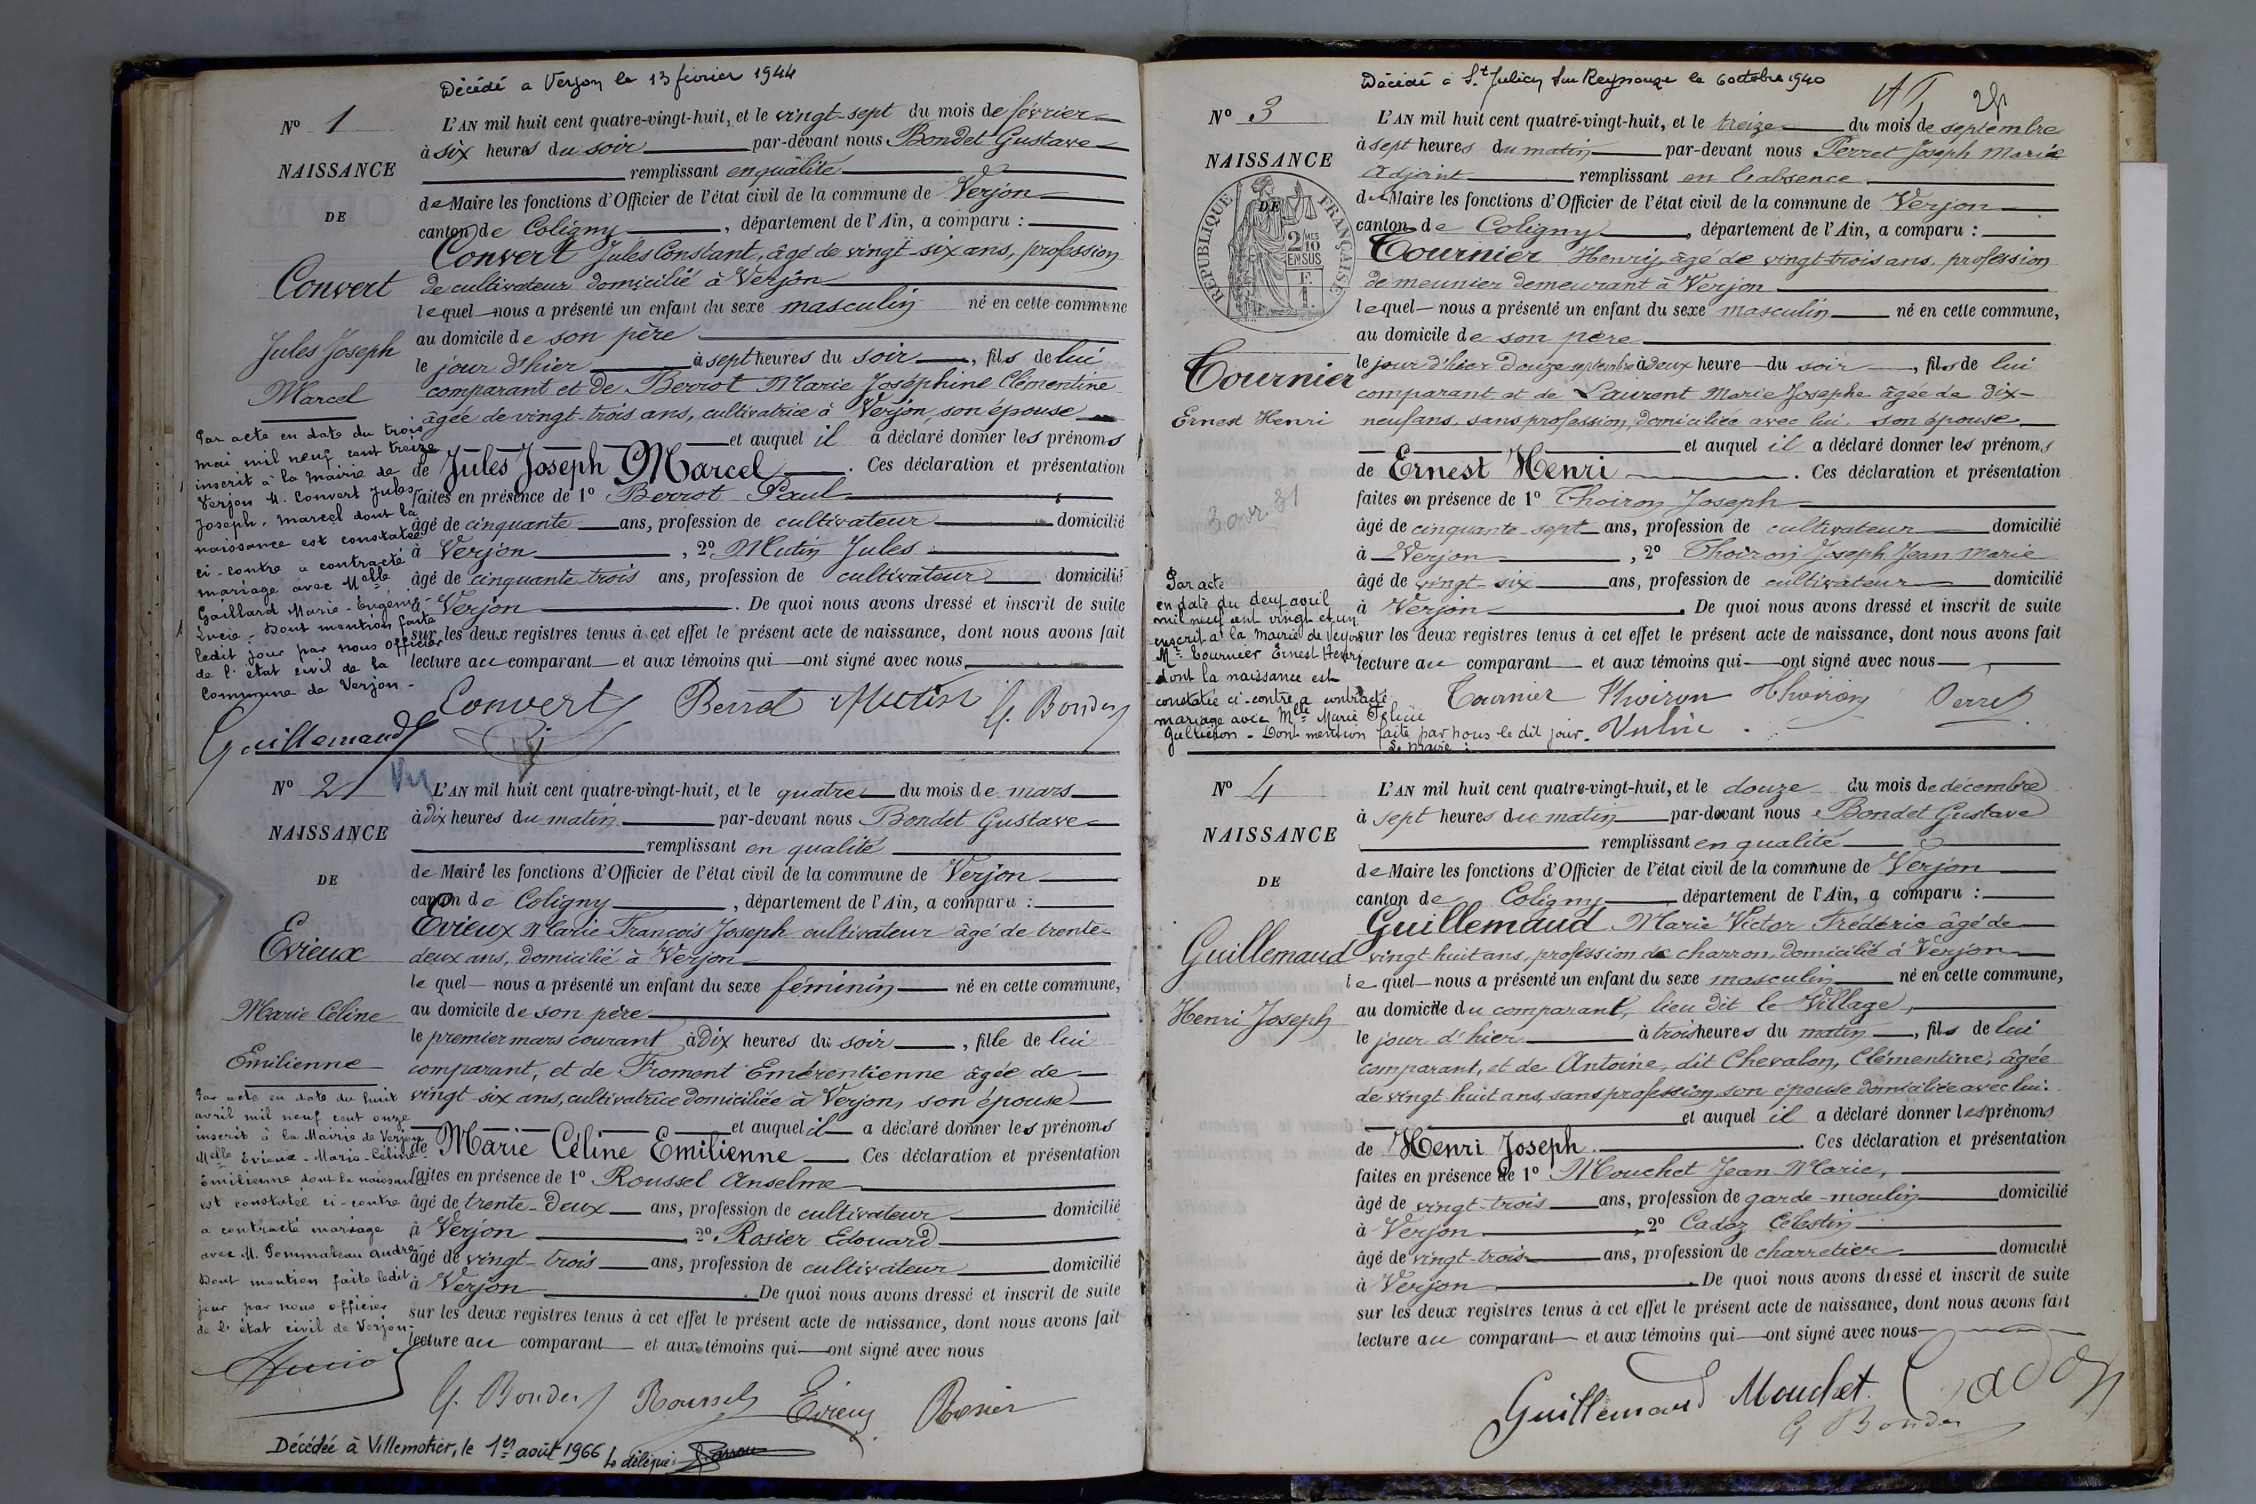 Décédé a Verjon le 13 février 1944
Nº 1
NAISSANCE
DE
Convert
Jules Joseph
Marcel
L'AN mil huit cent quatre-vingt-huit, et le vingt-sept du mois de février
à six heures du soir par-devant nous Bondet Gustave
remplissant en qualité
de Maire les fonctions d'Officier de l'état civil de la commune de Verjon
canton de Coligny, département de l'Ain, a comparu :
Convert Jules Constant, âgé de vingt-six ans, profession
de cultivateur domicilié à Verjon
lequel nous a présenté un enfant du sexe masculin né en cette commune
au domicile de son père
le jour d'hier à sept heures du soir, fils de lui
comparant et de Berrot Marie Joséphine Clémentine
âgée de vingt-trois ans, cultivatrice à Verjon, son épouse
et auquel il a déclaré donner les prénoms
de Jules Joseph Marcel. Ces déclaration et présentation
faites en présence de 1º Berrot Paul
âgé de cinquante ans, profession de cultivateur domicilié
à Verjon, 2º Mutin Jules
âgé de cinquante-trois ans, profession de cultivateur domicilié
à Verjon. De quoi nous avons dressé et inscrit de suite
sur les deux registres tenus à cet effet le présent acte de naissance, dont nous avons fait
lecture au comparant et aux témoins qui ont signé avec nous
Par acte en date du trois
mai mil neuf cent treize
inscrit à la Mairie de
Verjon M. Convert Jules
Joseph. Marcel dont la
naissance est constatée
ci-contre a contracté
mariage avec Melle
Gaillard Marie-Eugénie-
Lucie. Dont mention faite
ledit jour par nous officier
de l'état civil de la
Commune de Verjon-
Guillemaud
Convert Berrot Mutin G. Bondet
Nº 2
NAISSANCE
DE
Evieux
Marie Céline
Emilienne
L'AN mil huit cent quatre-vingt-huit, et le quatre du mois de mars
à dix heures du matin par-devant nous Bondet Gustave
remplissant en qualité
de Maire les fonctions d'Officier de l'état civil de la commune de Verjon
canton de Coligny, département de l'Ain, a comparu :
Evieux Marie François Joseph cultivateur âgé de trente-
deux ans, domicilié à Verjon
lequel nous a présenté un enfant du sexe féminin né en cette commune,
au domicile de son père
le premier mars courant à dix heures du soir, fille de lui
comparant, et de Froment Emérentienne âgée de
vingt-six ans, cultivatrice domiciliée à Verjon, son épouse
et auquel il a déclaré donner les prénoms
de Marie Céline Emilienne Ces déclaration et présentation
faites en présence de 1º Roussel Anselme
âgé de trente-deux ans, profession de cultivateur domicilié
à Verjon 2º Rosier Edouard
âgé de vingt-trois ans, profession de cultivateur domicilié
à Verjon. De quoi nous avons dressé et inscrit de suite
sur les deux registres tenus à cet effet le présent acte de naissance, dont nous avons fait
lecture au comparant et aux témoins qui ont signé avec nous
Par acte en date du huit
avril mil neuf cent onze
inscrit à la Mairie de Verjon
Melle Evieux-Marie-Céline
Emilienne dont la naissance
est constatée ci-contre
a contracté mariage
avec M. Pommateau André
Dont mention faite ledit
jour par nous officier
de l'état civil de Verjon-
G. Bondet Roussel Evieux Rosier
Décédée à Villemotier, le 1er août 1966 Le délégué:
Décédé à St Julien sur Reyssouze le 6 octobre 1940
Nº 3
NAISSANCE
DE
RÉPUBLIQUE FRANÇAISE
2/10 MES
EN SUS
Tournier
Ernest Henri
L'AN mil huit cent quatre-vingt-huit, et le treize du mois de septembre
à sept heures du matin par-devant nous Perret Joseph Marie
adjoint remplissant en l'absence
de Maire les fonctions d'Officier de l'état civil de la commune de Verjon
canton de Coligny, département de l'Ain, a comparu :
Tournier Henry âgé de vingt-trois ans, profession
de meunier demeurant à Verjon
lequel nous a présenté un enfant du sexe masculin né en cette commune,
au domicile de son père
le jour d'hier douze septembre à deux heure du soir, fils de lui
comparant et de Laurent Marie Josephe âgée de dix-
neuf ans, sans profession, domiciliée avec lui, son épouse
et auquel il a déclaré donner les prénoms
de Ernest Henri. Ces déclaration et présentation
faites en présence de 1º Thoiron Joseph
âgé de cinquante-sept ans, profession de cultivateur domicilié
à Verjon, 2º Thoiron Joseph Jean Marie
âgé de vingt-six ans, profession de cultivateur domicilié
à Verjon. De quoi nous avons dressé et inscrit de suite
sur les deux registres tenus à cet effet le présent acte de naissance, dont nous avons fait
lecture au comparant et aux témoins qui ont signé avec nous
3 avr. 31
Par acte
en date du deux avril
mil neuf cent vingt et un
inscrit à la Mairie de Verjon
Mr. Tournier Ernest Henri
dont la naissance est
constatée ci-contre a contracté
mariage avec Mlle Marie Félicie
Dont mention faite par nous le dit jour.
Le Maire :
Tournier Thoiron Thoiron Perret
Nº 4
NAISSANCE
DE
Guillemaud
Henri Joseph
L'AN mil huit cent quatre-vingt-huit, et le douze du mois de décembre
à sept heures du matin par-devant nous Bondet Gustave
remplissant en qualité
de Maire les fonctions d'Officier de l'état civil de la commune de Verjon
canton de Coligny, département de l'Ain, a comparu :
Guillemaud Marie Victor Frédéric âgé de
vingt huit ans, profession de charron, domicilié à Verjon
lequel nous a présenté un enfant du sexe masculin né en cette commune,
au domicile du comparant, lieu dit le Village,
le jour d'hier à trois heures du matin, fils de lui
comparant, et de Antoine, dit Chevalon, Clémentine, âgée
de vingt huit ans, sans profession, son épouse domiciliée avec lui.
et auquel il a déclaré donner les prénoms
de Henri Joseph. Ces déclaration et présentation
faites en présence de 1º Mouchet Jean Marie,
âgé de vingt-trois ans, profession de garde-moulin domicilié
à Verjon, 2º Cadoz Célestin
âgé de vingt-trois ans, profession de charretier domicilié
à Verjon. De quoi nous avons dressé et inscrit de suite
sur les deux registres tenus à cet effet le présent acte de naissance, dont nous avons fait
lecture au comparant et aux témoins qui ont signé avec nous
Guillemaud Mouchet Cadoz
G Bondet